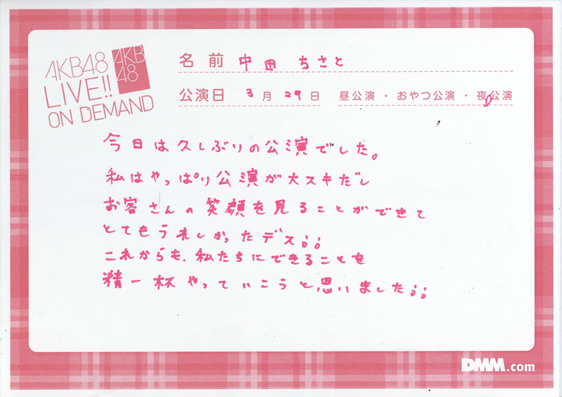 AKB48
LIVE!!
ON DEMAND
AKB
48
名前 中田 ちさと
公演日 3月29日 昼公演・おやつ公演・夜公演
今日は久しぶりの公演でした。
私はやっぱり公演が大スキだし
お客さんの笑顔を見ることができて
とてもうれしかったデス
これからも、私たちにできることを
精一杯やっていこうと思いました
DMM.com